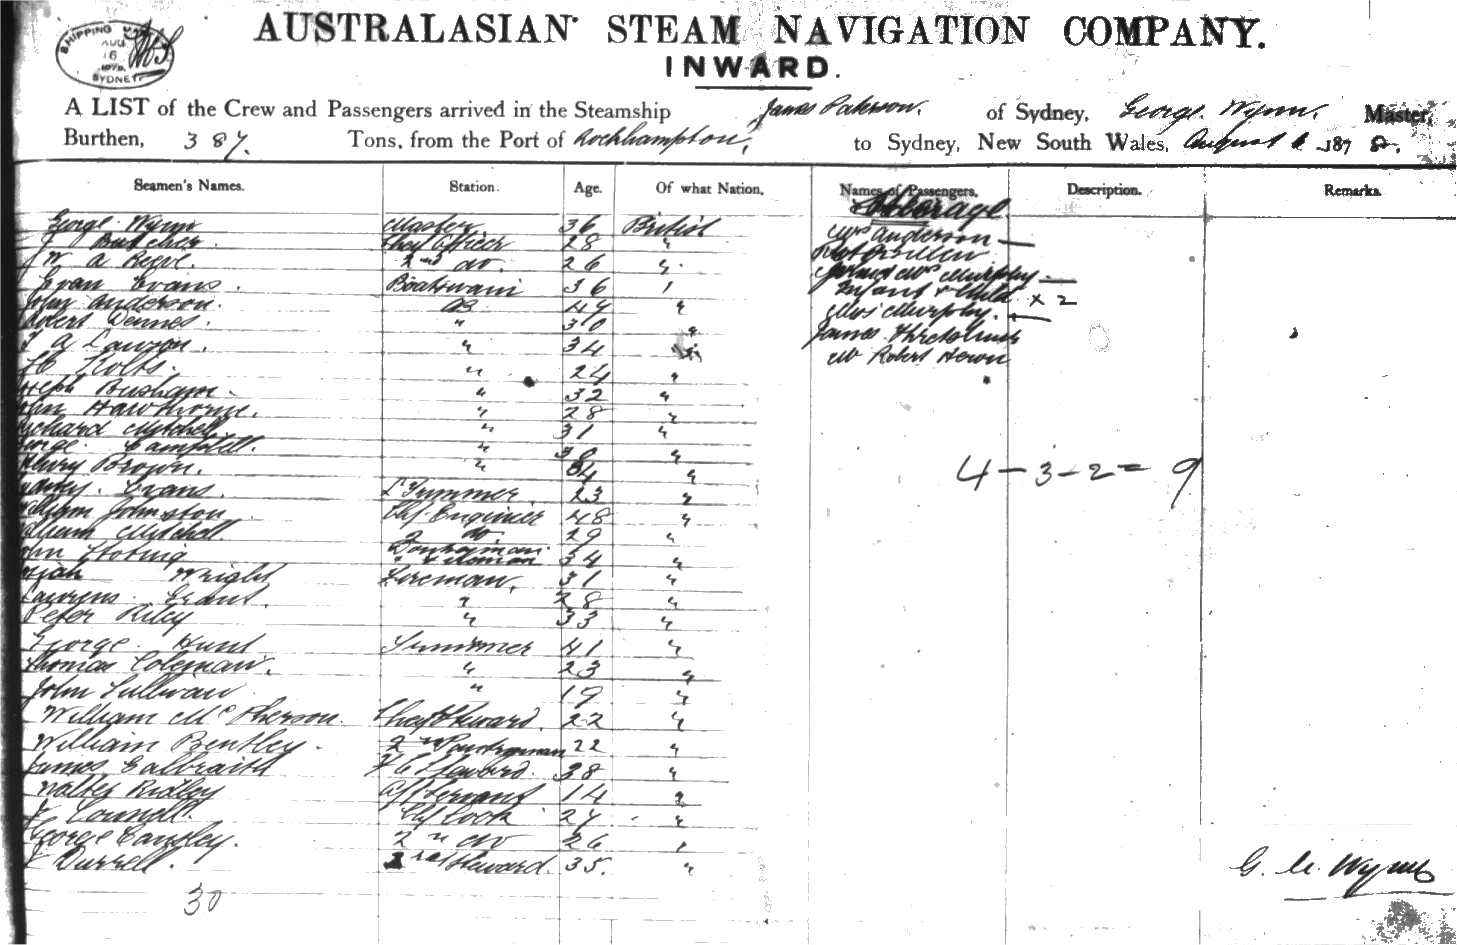 SHIPPING
AUG
6
SYDNEY
AUSTRALASIAN STEAM NAVIGATION COMPANY.
INWARD.
A LIST of the Crew and Passengers arrived in the Steamship James Paterson. of Sydney, George Wynn, Master,
Burthen, 387. Tons, from the Port of Rockhampton, to Sydney, New South Wales, August 6 1878.
Seamen's Names. Station. Age. Of what Nation. Names of Passengers. Description. Remarks.
George Wynn Master 36 British
J Butcher Chief Officer 28 "
J W A Reeve. 2nd do. 26 "
Evan Evans. Boatswain 36 "
John Anderson. AB 49 "
Robert Dennes. " 30 "
J A Lawson. " 34 "
" 24 "
Joseph Busham. " 32 "
John Hawthorne. " 28 "
Richard Mitchell " 31 "
George Campbell. " 30 "
Henry Brown. " 34 "
Evans. Trimmer. 23 "
William Johnston Chf Engineer 48 "
William Mitchell 2 do. 29 "
John Donkeyman 34 "
Wright Fireman, 31 "
Grant. " 28 "
Peter Riley " 33 "
George Hunt Trimmer 41 "
Thomas Coleman. " 23 "
John Sullivan " 19 "
William McPherson. Chief Steward. 22 "
William Bentley. 2nd Pantryman 22 "
James Galbraith F C Steward. 38 "
Walter Ridley Servant 14 "
J Connell. Chf Cook 27 "
George Cansley. 2nd do 26 "
J Durrell. Steward. 35. "
30
Steerage
Mrs Anderson
Mrs Murphy
Infant & Child x 2
Miss Murphy.
James
Mr Robert
4 - 3 - 2 = 9
G. Wynn